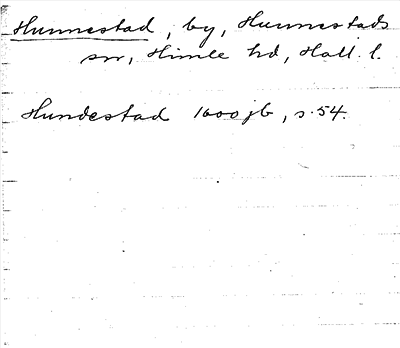 Hunnestad, by, Hunnestads
sn, Himle hd, Hall. l.
Hundestad 1600 jb, s. 54.